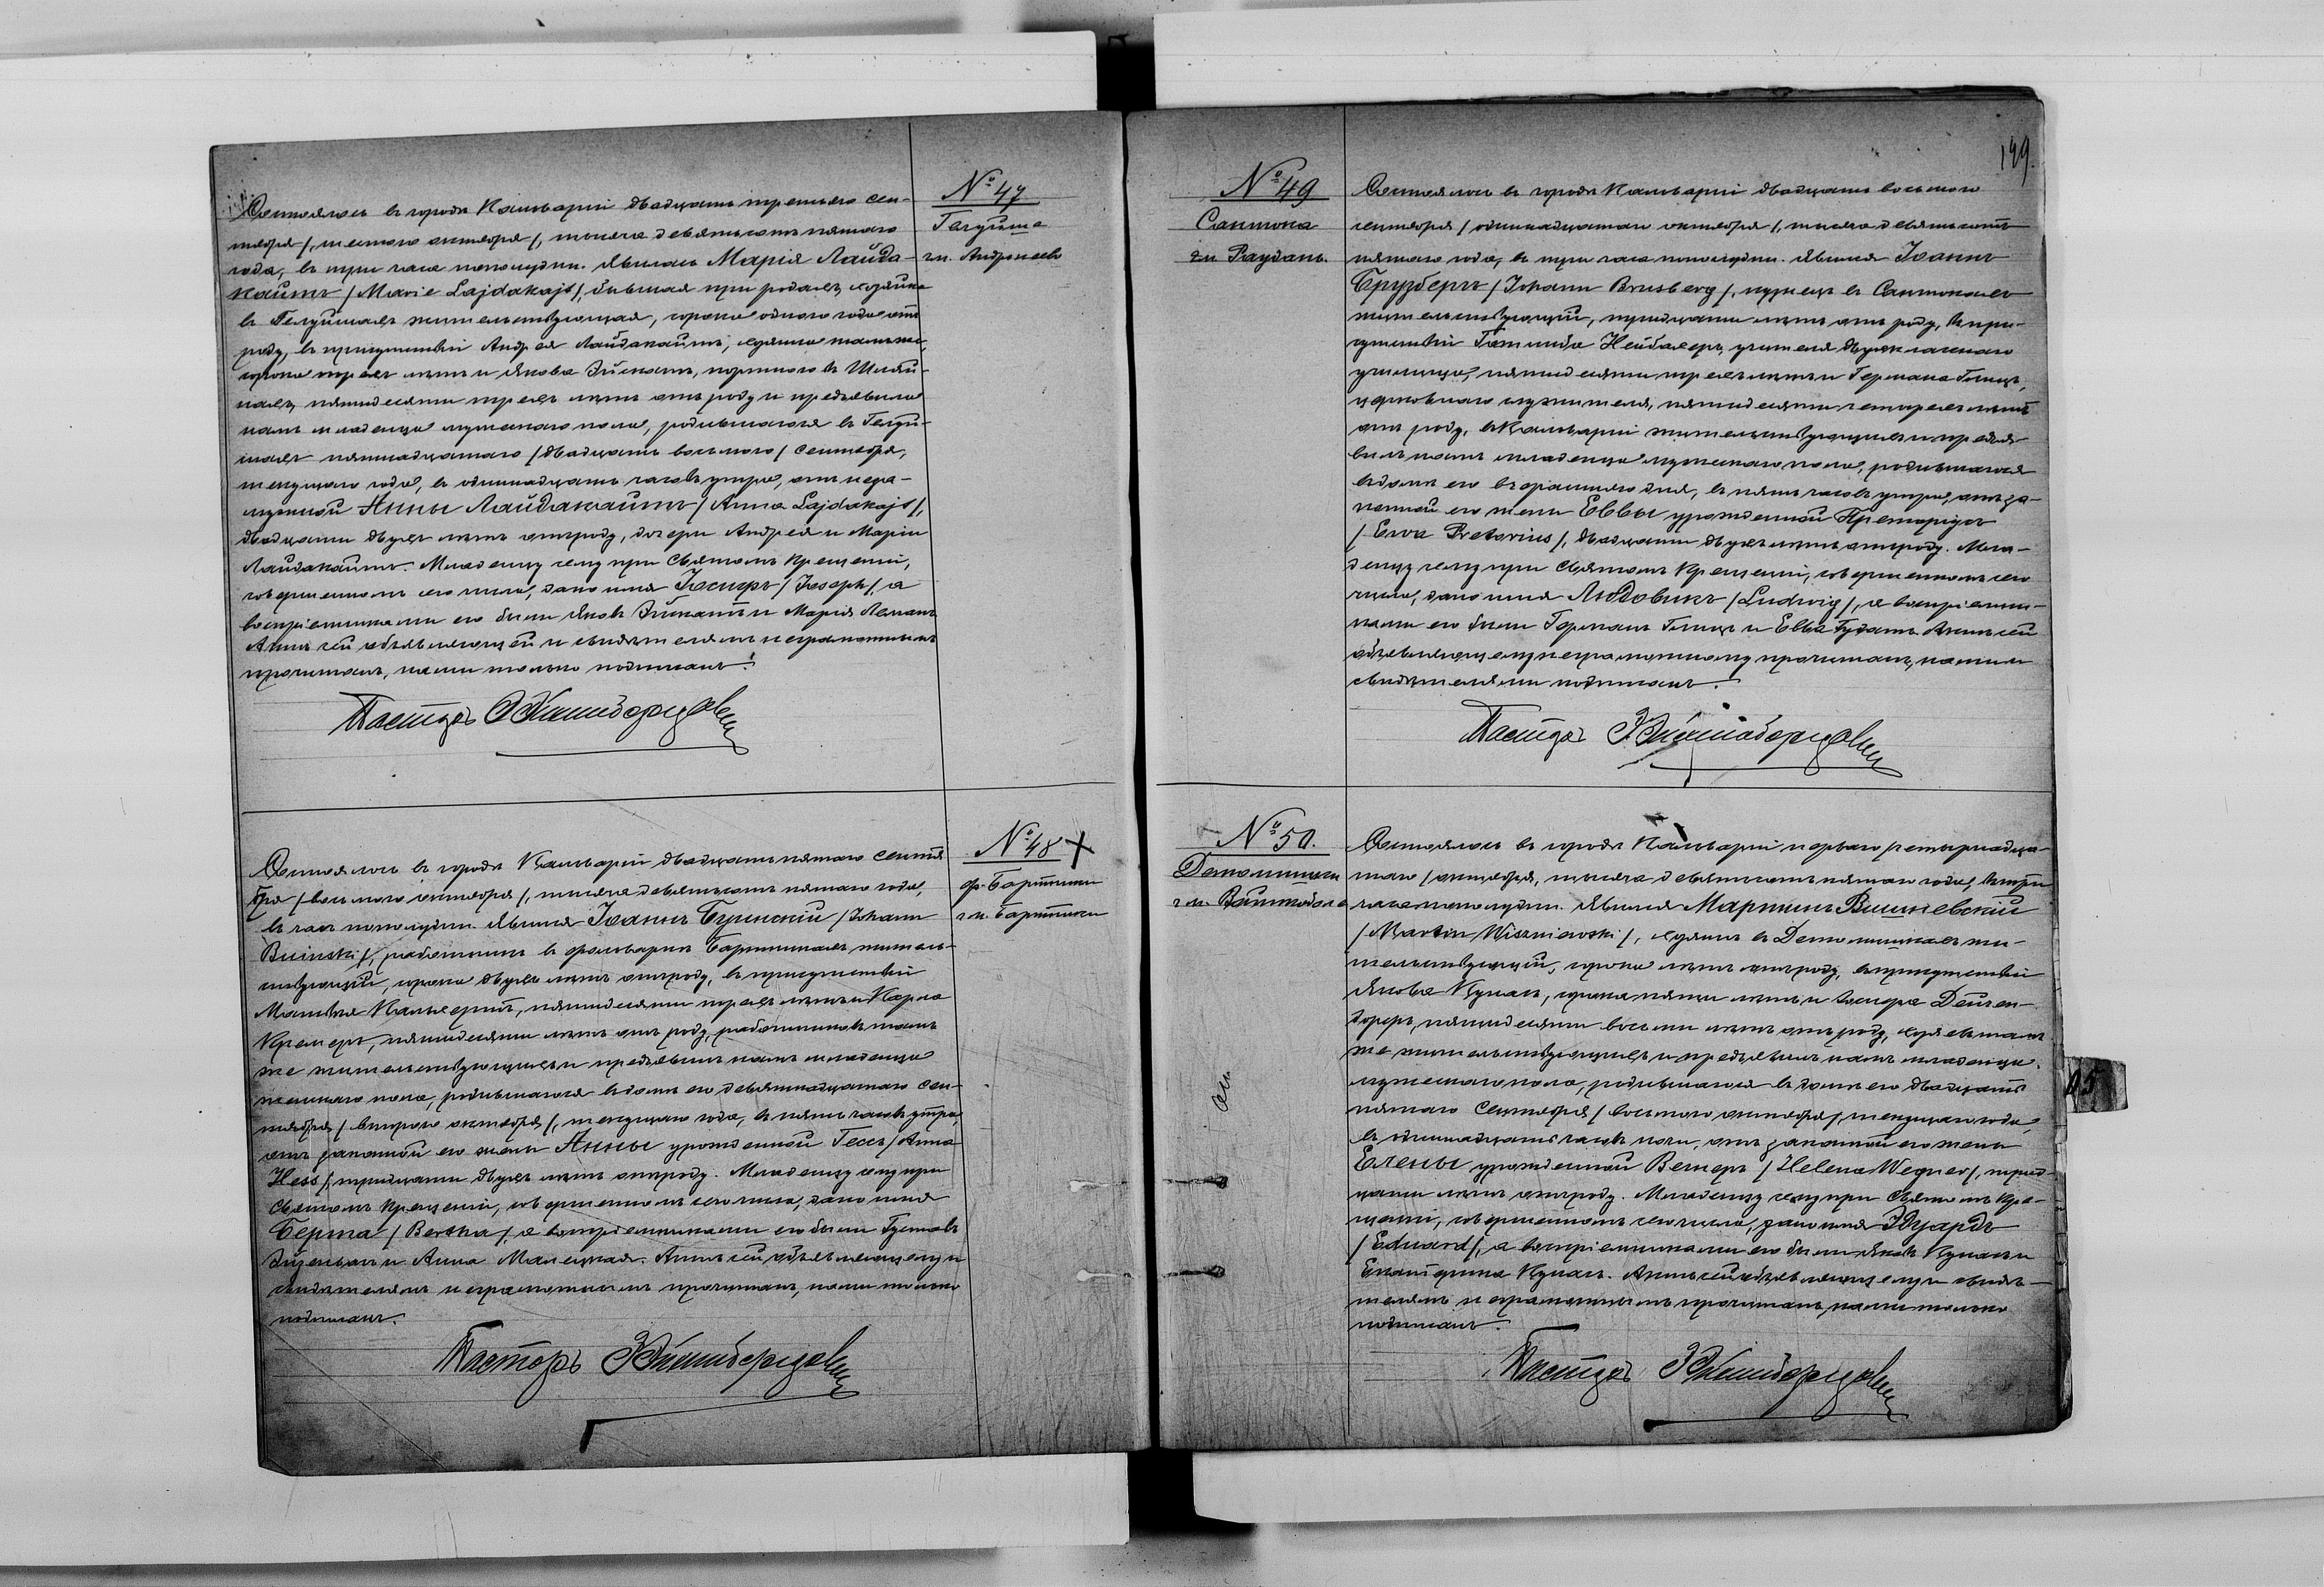 № 47
Гелуйша
гм. Андреевъ
Состоялось въ городѣ Кальваріи двадцать третьяго сен-
тября /шестого октября/, тысяча девятьсотъ пятаго
года, въ три часа пополудни. Явилась Марія Лайда-
кайтъ /Marie Lajdakajt/, бывшая при родахъ, хозяйка
въ Гелуйшахъ жительствующая, сорока одного года отъ
роду, въ присутствіи Андрея Лайдакайтъ, хозяина тамъ же,
сорока трехъ лѣтъ и Якова портного въ
пятидесяти трехъ лѣтъ отъ роду и предъявила
намъ младенца мужескаго пола, родившагося въ Гелуй-
шахъ пятнадцатаго /двадцать восьмого/ сентября,
текущаго года, въ одиннадцать часовъ утра, отъ неза-
мужней Анны Лайдакайтъ /Anna Lajdakajt/,
двадцати двухъ лѣтъ отъ роду, дочери Андрея и Маріи
Лайдакайтъ. Младенцу сему при Святомъ Крещеніи,
совершенномъ сего числа, дано имя Іосифъ /Joseph/, а
воспріемниками его были Яковъ и Марія Леманъ
Актъ сей объявляющей и свидѣтелямъ неграмотнымъ
прочитанъ, нами только подписанъ.
Пасторъ
№ 48 X
ф. Бартники
гм. Бартники
Состоялось въ городѣ Кальваріи двадцать пятаго сентя
бря /восьмого октября/, тысяча девятьсотъ пятаго года,
въ часъ пополудни. Явился Іоаннъ Буинскій /Johann
Buinski/, работникъ въ фольваркѣ Бартникахъ житель-
ствующій, сорока двухъ лѣтъ отъ роду, въ присутствіи
Матвѣя пятидесяти трехъ лѣтъ и Карла
Кремеръ, пятидесяти лѣтъ отъ роду, работниковъ тамъ
же жительствующихъ и предъявилъ намъ младенца
женскаго пола, родившагося въ домѣ его девятнадцатаго сен-
тября /второго октября/, текущаго года, въ пять часовъ утра,
отъ законной его жены Анны урожденной Гессъ /Anna
Hess/, тридцати двухъ лѣтъ отъ роду. Младенцу сему при
Святомъ Крещеніи, совершенномъ сего числа, дано имя
Берта /Bertha/, а воспріемниками его были Густавъ
и Анна Малецкая. Актъ сей объявляющему и
свидѣтелямъ неграмотнымъ прочитанъ, нами только
подписанъ.
Пасторъ
199.
№ 49
Сантока
гм. Раудань.
Состоялось въ городѣ Кальваріи двадцать восьмого
сентября /одиннадцатаго октября/, тысяча девятьсотъ
пятаго года, въ три часа пополудни. Явился Іоаннъ
Брузбергъ /Johann Brusberg/, кузнецъ въ Сантокахъ
жительствующій, тридцати лѣтъ отъ роду, въ при-
сутствіи Готлиба учителя двухкласснаго
училища, пятидесяти трехъ лѣтъ и Германа
церковнаго служителя, пятидесяти четырехъ лѣтъ
отъ роду, въ Кальваріи жительствующихъ и предъя-
вилъ намъ младенца мужескаго пола, родившагося
въ домѣ его вчерашняго дня, въ пять часовъ утра, отъ за-
конной его жены Еввы урожденной Преторіусъ
/Ewa Pretorius/, двадцати двухъ лѣтъ отъ роду. Мла-
денцу сему при Святомъ Крещеніи, совершенномъ сего
числа, дано имя Людовикъ /Ludwig/, а воспріемни-
ками его были Германъ и Евва Актъ сей
объявляющему неграмотному прочитанъ, нами и
свидѣтелями подписанъ.
Пасторъ
№ 50.
гм.
Состоялось въ городѣ Кальваріи перваго /четырнадца-
таго/ октября, тысяча девятьсотъ пятаго года, въ три
часа пополудни. Явился Мартинъ Вишневскій
/Martin Wiszniewski/, хозяинъ въ жи-
тельствующій, сорока лѣтъ отъ роду, въ присутствіи
Якова Кунанъ, сорока пяти лѣтъ и Іосифа
пятидесяти восьми лѣтъ отъ роду, хозяевъ тамъ
же жительствующихъ и предъявилъ намъ младенца
мужескаго пола, родившагося въ домѣ его двадцать
пятаго сентября /восьмого октября/, текущаго года,
въ одиннадцать часовъ ночи, отъ законной его жены
Елены урожденной Вегнеръ /Helena Wegner/, трид-
цати лѣтъ отъ роду. Младенцу сему при Святомъ Кре-
щеніи, совершенномъ сего числа, дано имя Эдуардъ
/Eduard/, а воспріемниками его были Яковъ Кунанъ и
Екатерина Кунанъ. Актъ сей объявляющему и свидѣ-
телямъ неграмотнымъ прочитанъ, нами только
подписанъ.
Пасторъ